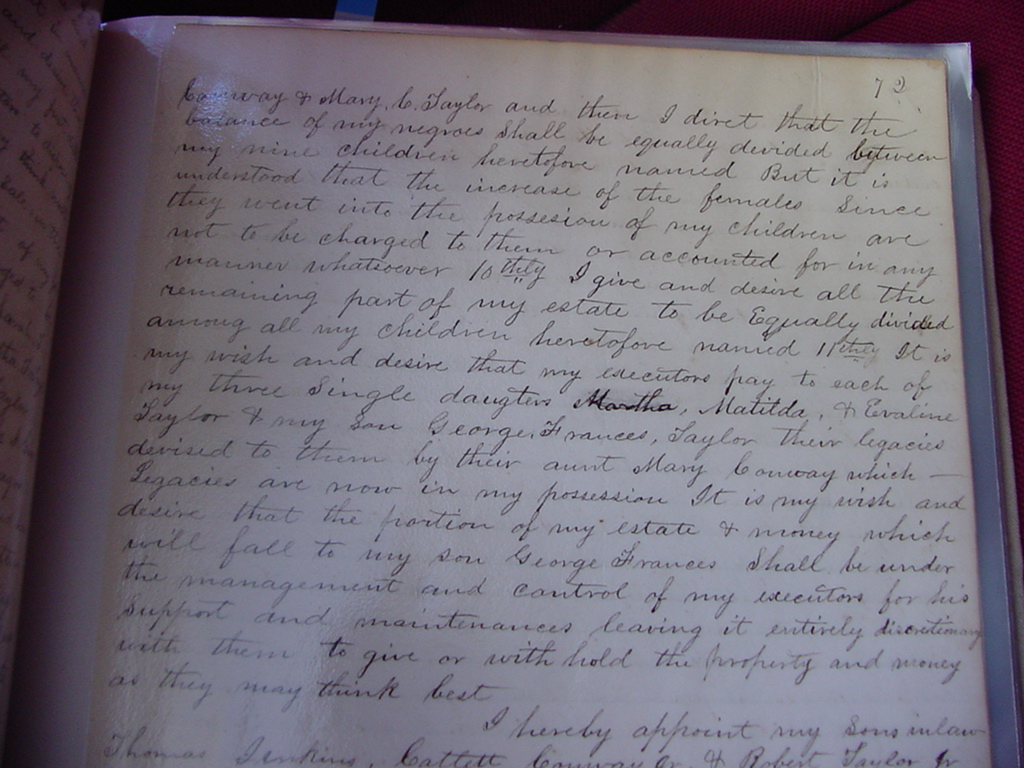 72
Conway & Mary, C. Taylor and then I diret that the
balance of my negroes Shall be equally devided between
my nine children heretofore named But it is
understood that the increase of the females Since
they went into the possesion of my children are
not to be charged to them or accounted for in any
manner whatsoever 10thly I give and desire all the
remaining part of my estate to be Equally divided
among all my children heretofore named 11thly It is
my wish and desire that my executors pay to each of
my three Single daugters Martha, Matilda, & Evaline
Taylor & my son George, Frances, Taylor their legacies
devised to them by their aunt Mary Conway which –
Legacies are now in my possession It is my wish and
desire that the portion of my estate & money which
will fall to my son George Frances Shall be under
the management and control of my executors for his
Support and maintenances leaving it entirely discretionary
with them to give or with hold the property and money
as they may think best
I hereby appoint my Sons inlaw
Thomas Jenkins, Catlett Conway Jr. & Robert Taylor Jr